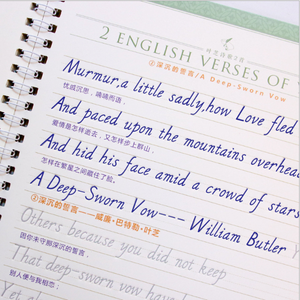 叶芝诗歌2首
2 ENGLISH VERSES OF
①深沉的誓言/A Deep-Sworn Vow
Murmur,a little sadly,how Love fled
忧戚沉思，喃喃而语，
And paced upon the mountains overhead
爱情是怎样逝去，又怎样步上群山，
And hid his face amid a crowd of stars
怎样在繁星之间藏住了脸。
A Deep-Sworn Vow--- William Butler
②深沉的誓言——威廉·巴特勒·叶芝
Others because you did not keep
因你未守那深沉的誓言，
That deep-sworn vow have
别人便与我相恋；
Yet